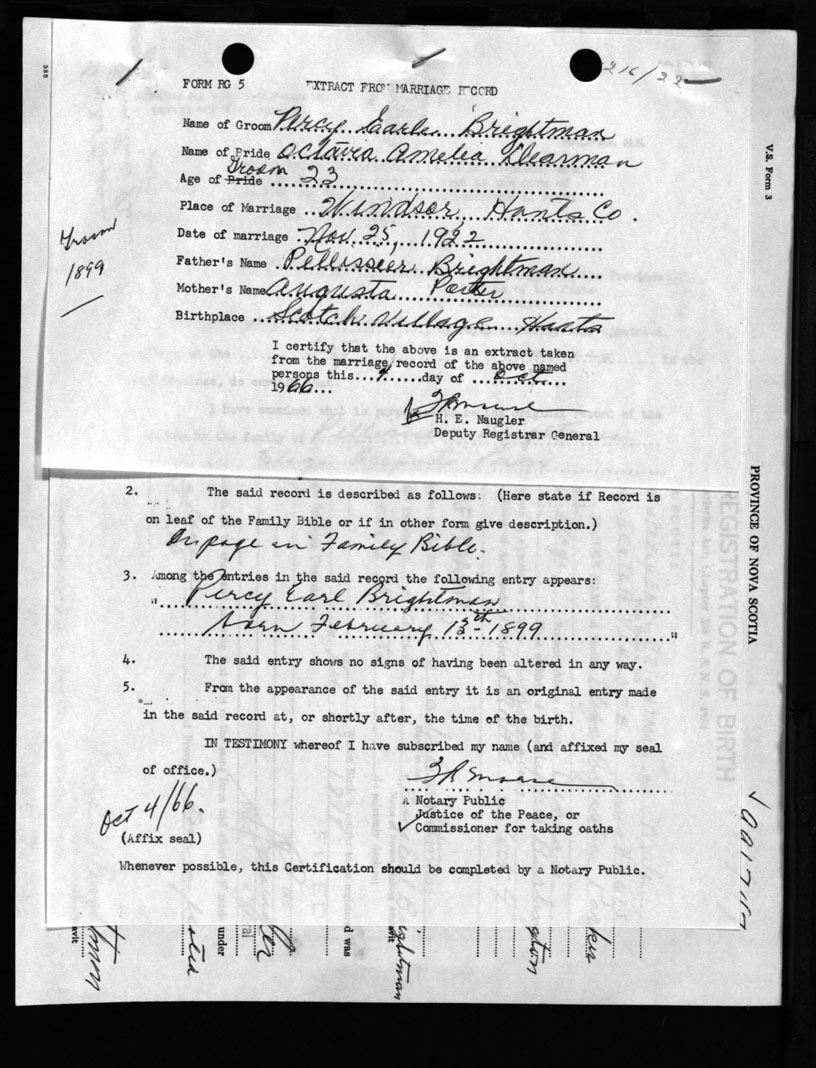 216/22
FORM RG 5 EXTRACT FROM MARRIAGE RECORD
Name of Groom Percy Earle Brightman
Name of Bride Octavia Amelia Dearman
Groom
Age of Bride 23
Place of Marriage Windsor Hants Co.
Date of marriage Nov. 25, 1922
Father's Name Pellissier Brightman
Mother's Name Augusta Porter
Birthplace Scotch Village Hants
Groom
1899
I certify that the above is an extract taken
from the marriage record of the above named
persons this 4 day of Oct
1966
H. E. Naugler
Deputy Registrar General
2. The said record is described as follows: (Here state if Record is
on leaf of the Family Bible or if in other form give description.)
On page in Family Bible.
3. Among the entries in the said record the following entry appears:
" Percy Earl Brightman
born February 13th - 1899 "
4. The said entry shows no signs of having been altered in any way.
5. From the appearance of the said entry it is an original entry made
in the said record at, or shortly after, the time of the birth.
IN TESTIMONY whereof I have subscribed my name (and affixed my seal
of office.)
A Notary Public
Justice of the Peace, or
Commissioner for taking oaths
Oct 4/66.
(Affix seal)
Whenever possible, this Certification should be completed by a Notary Public.
V.S. Form 3
PROVINCE OF NOVA SCOTIA
REGISTRATION OF BIRTH
under
d was